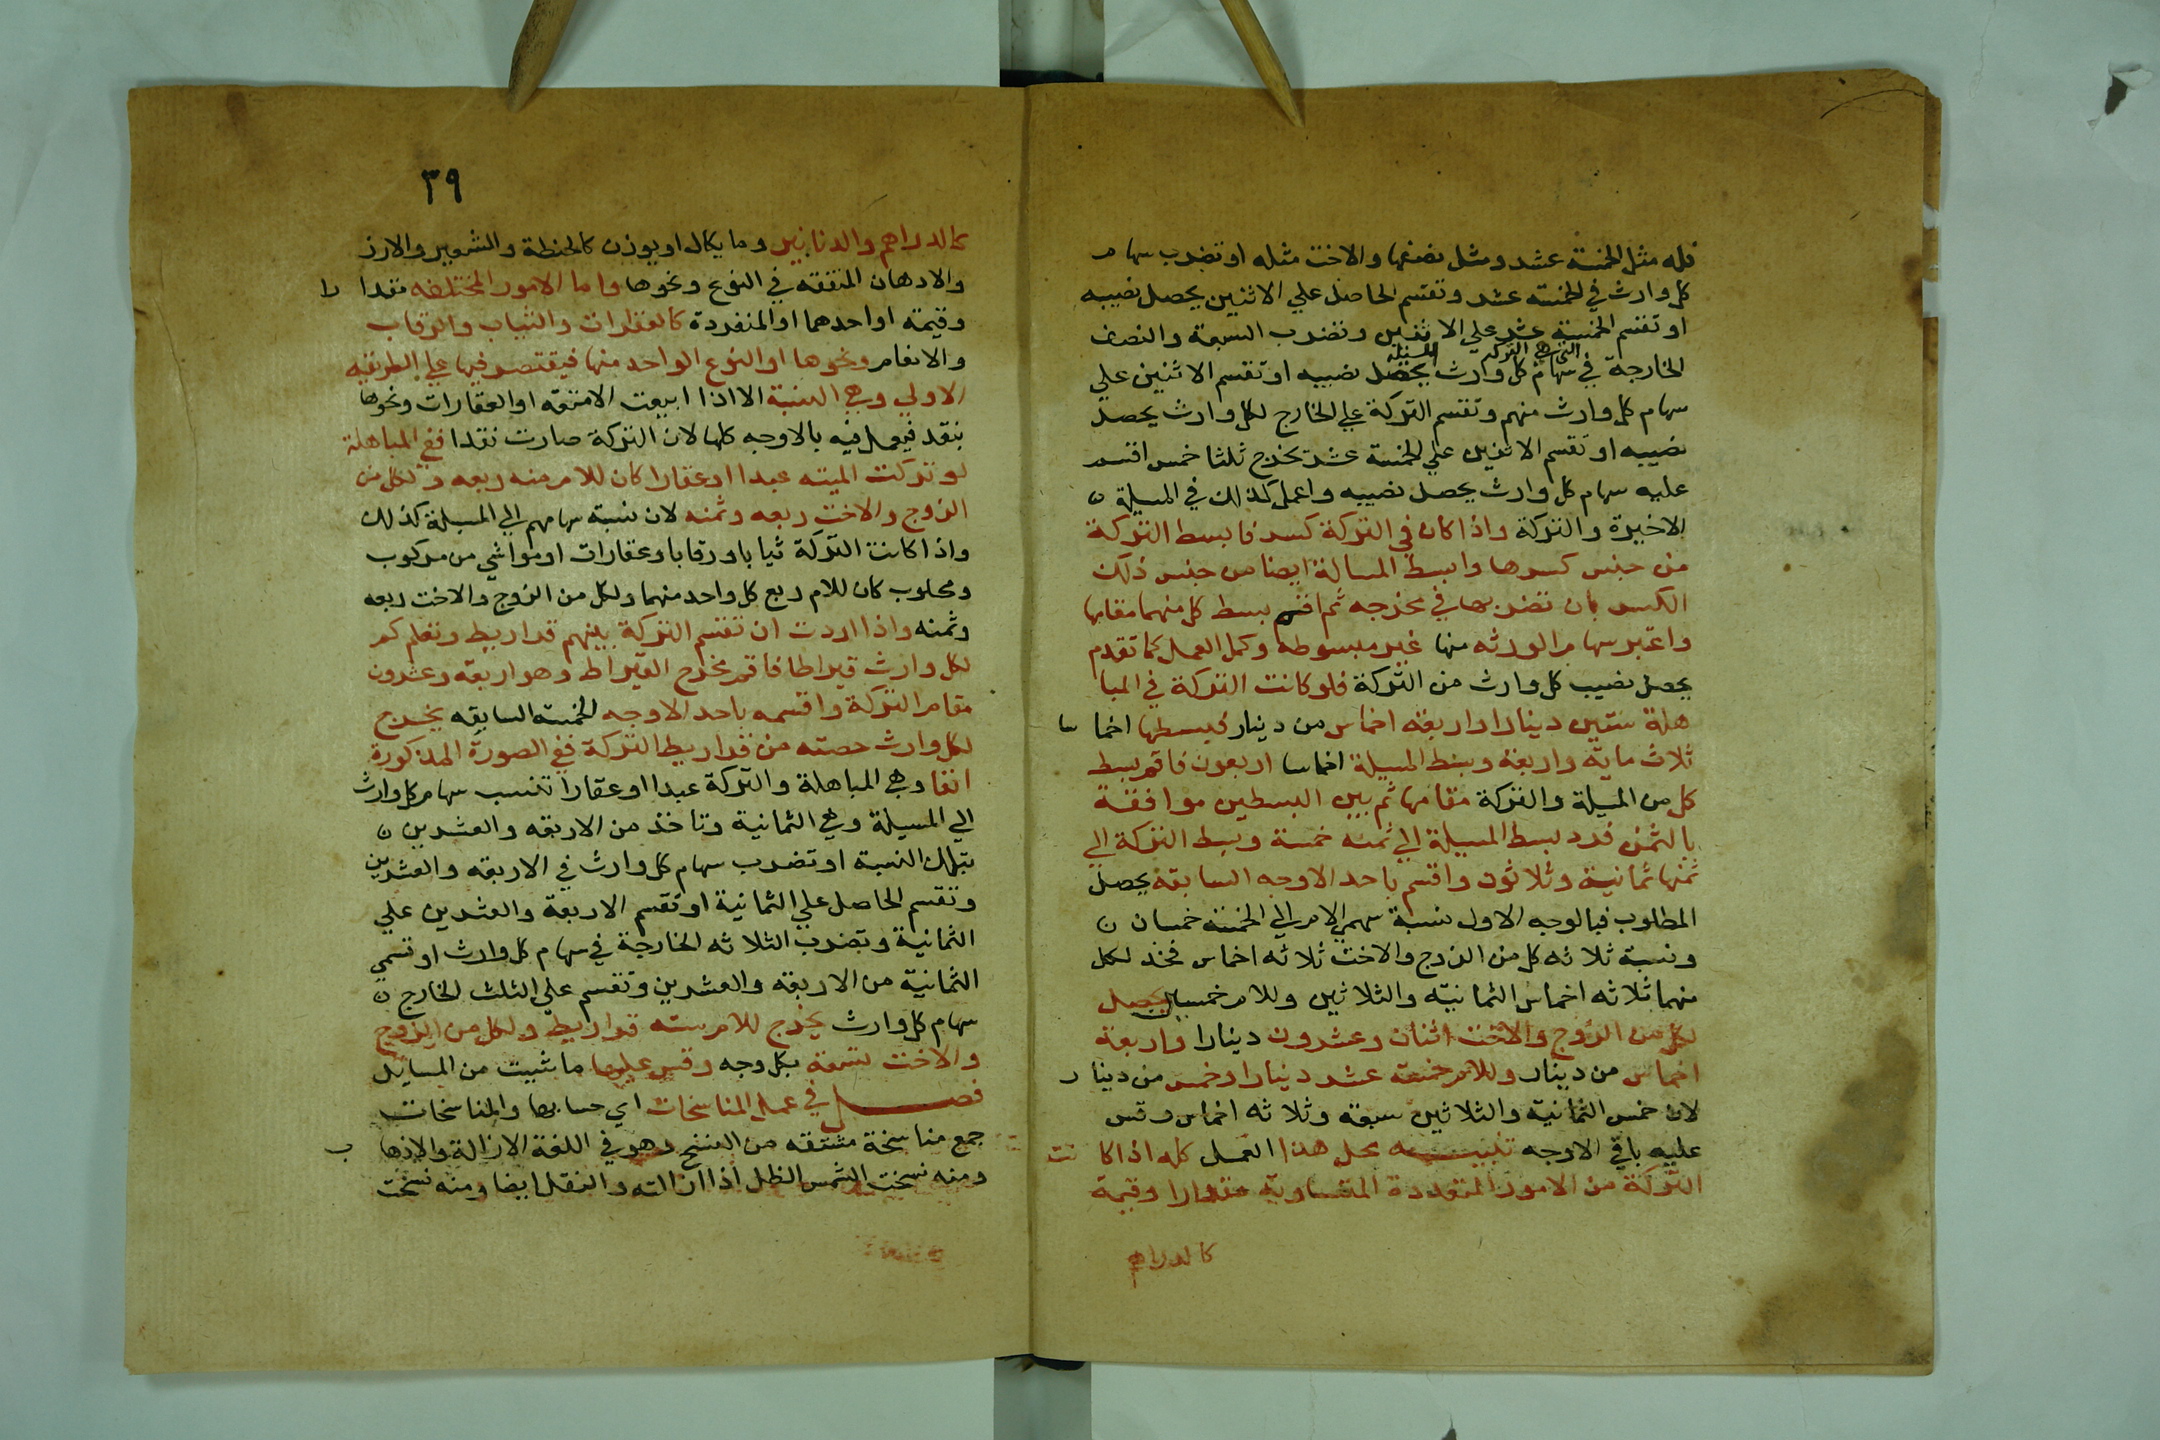 فله مثل الخمسة عشر ومثل نصفها والاخت مثله او تضرب سهام
كل وارث في الخمسة عشر وتقسم الحاصل علي الاثنين يحصل نصيبه
او تقسم الخمسة عشر علي الاثنين وتضرب السبعة والنصف
التي هي التركة المسئلة
الخارجة في سهام كل وارث يحصل نصيبه او تقسم الاثنين علي
سهام كل وارث منهم وتقسم التركة علي الخارج لكل وارث يحصل
نصيبه او تقسم الاثنين علي الخمسة عشر تخرج ثلثا خمس اقسم
عليه سهام كل وارث يحصل نصيبه واعمل كذلك في المسيلة
الاخيرة والتركة واذا كان في التركة كسر فابسط التركة
من جنس كسرها وابسط المسالة ايضا من جنس ذلك
الكسر بان تضربها في مخرجه ثم اقم بسط كل منهما مقامها
واعتبر سهام الورثه منها غير مبسوطه وكمل العمل كما تقدم
يحصل نصيب كل وارث من التركة فلو كانت التركة في المبا
هلة ستين دينارا واربعه اخماس من دينار فبسطها اخما سا
ثلاث ماية واربعة وبسط المسيلة اخماسا اربعون فاقم بسط
كل من المسيلة والتركة مقامها ثم بين البسطين موافقة
بالثمن فرد بسط المسيلة الي ثمنه خمسة وبسط التركة الي
ثمنها ثمانية وثلاثون واقسم باحد الاوجه السابقة يحصل
المطلوب فبالوجه الاول نسبة سهمي الام الي الخمسة خمسان
ونسبة ثلاثه كل من الزوج والاخت ثلاثه اخماس فخذ لكل
منهما ثلاثه اخماس الثمانية والثلاثين وللام خمسين يحصل
لكل من الزوج والاخت اثنان وعشرون دينارا واربعة
اخماس من دينار وللام خمسة عشر دينارا وخمس من دينا ر
لان خمس الثمانية والثلاثين سبعة وثلاثه اخماس وقس
عليه باقي الاوجه تنبيه محل هذا العمل كله اذا كا نت
التركة من الامور المتعددة المتساوية مقدارا وقيمة
كالدراهم
٣٩
كالدراهم والدنانير وما يكال او يوزن كالحنطة والشعير والارز
والادهان المتفقه في النوع ونحوها واما الامور المختلفه مقدا را
وقيمته او احدهما او المنفردة كالعقارات والثياب والرقاب
والانعام ونحوها او النوع الواحد منها فيقتصر فيها علي الطريقه
الاولي وهي النسبة الا اذا ابيعت الامتعه او العقارات ونحوها
بنقد فيعمل فيه بالاوجه كلها لان التركة صارت نقدا ففي المباهلة
لو تركت الميته عبدا او عقارا كان للام منه ربعه ولكل من
الزوج والاخت ربعه وثمنه لان نسبة سهامهم الي المسيلة كذلك
واذا كانت التركة ثيابا ورقابا وعقارات او مواشي من مركوب
ومحلوب كان للام ربع كل واحد منهما ولكل من الزوج والاخت ربعه
وثمنه واذا اردت ان تقسم التركة بينهم قراريط وتعلم كم
لكل وارث قيراطا فاقم مخرج القيراط وهو اربعه وعشرون
مقام التركة واقسمه باحد الاوجه الخمسة السابقه يخرج
لكل وارث حصته من قراريط التركة ففي الصورة المذكورة
انفا وهي المباهلة والتركة عبدا او عقارا تنسب سهام كل وارث
الي المسيلة وهي الثمانية وتاخذ من الاربعه والعشرين
بتلك النسبة او تضرب سهام كل وارث في الاربعه والعشرين
وتقسم الحاصل علي الثمانية او تقسم الاربعة والعشرين علي
الثمانية وتضرب الثلاثه الخارجة في سهام كل وارث او تسمي
الثمانية من الاربعه والعشرين وتقسم علي الثلث الخارج
سهام كل وارث يخرج للام سته قراريط ولكل من الزوج
والاخت تسعة بكل وجه وقس عليها ما شيت من المسايل
فصل في عمل المناسخات اي حسابها والمناسخات
جمع مناسخة مشتقه من النسخ وهو في اللغة الازالة والاذها ب
ومنه نسخت الشمس الظل اذا ازالته والنقل ايضا ومنه نسخت